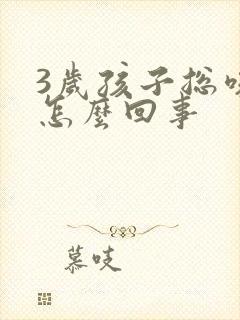 3歲孩子总
怎麼回事
慕吱